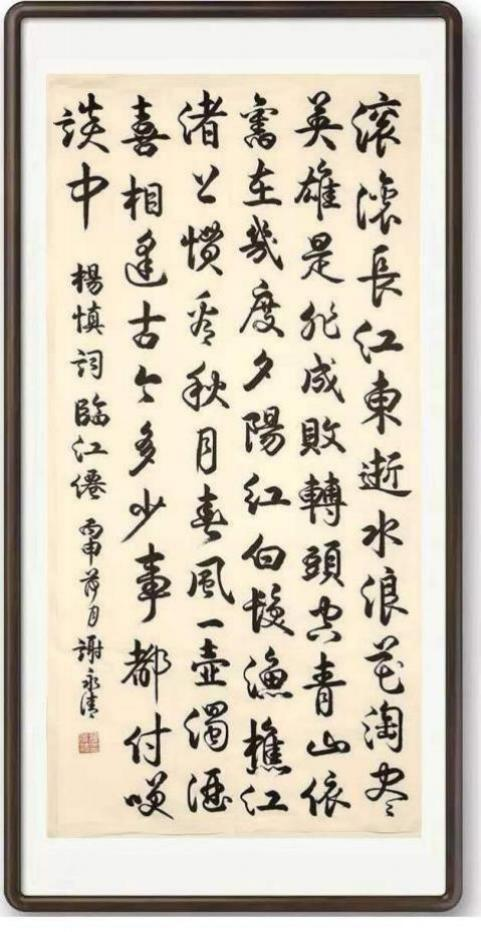 滚滚長江東逝水浪花淘盡
英雄是非成敗轉頭空青山依
舊在幾度夕陽紅白髮漁樵江
渚上慣看秋月春風一壺濁酒
喜相逢古今多少事都付笑
談中
楊慎詞臨江僊 丙申荷月 謝永清